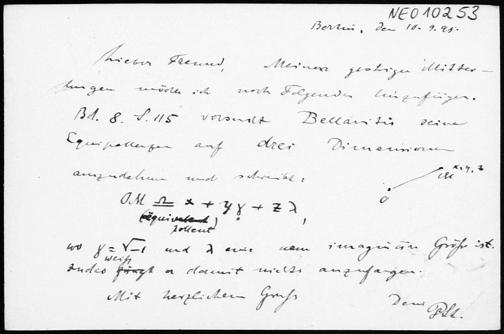 NEO10253
Berlin, den 10.9.95.
Lieber Freund, Meinen gestrigen Mittei-
lungen möchte ich noch Folgendes hinzufügen.
Bd. 8. S. 115 versucht Bellavitis seine
Equipollenzen auf drei Dimensionen
auszudehnen und schreibt:
x, y, z
M
O
OM ≏ x + yɣ + zλ,
(Equivalent)
pollent
wo ɣ = √-1 und λ eine neue imaginäre Größe ist.
weiß
Indes er damit nichts anzufangen.
Mit herzlichem Gruß
Dein